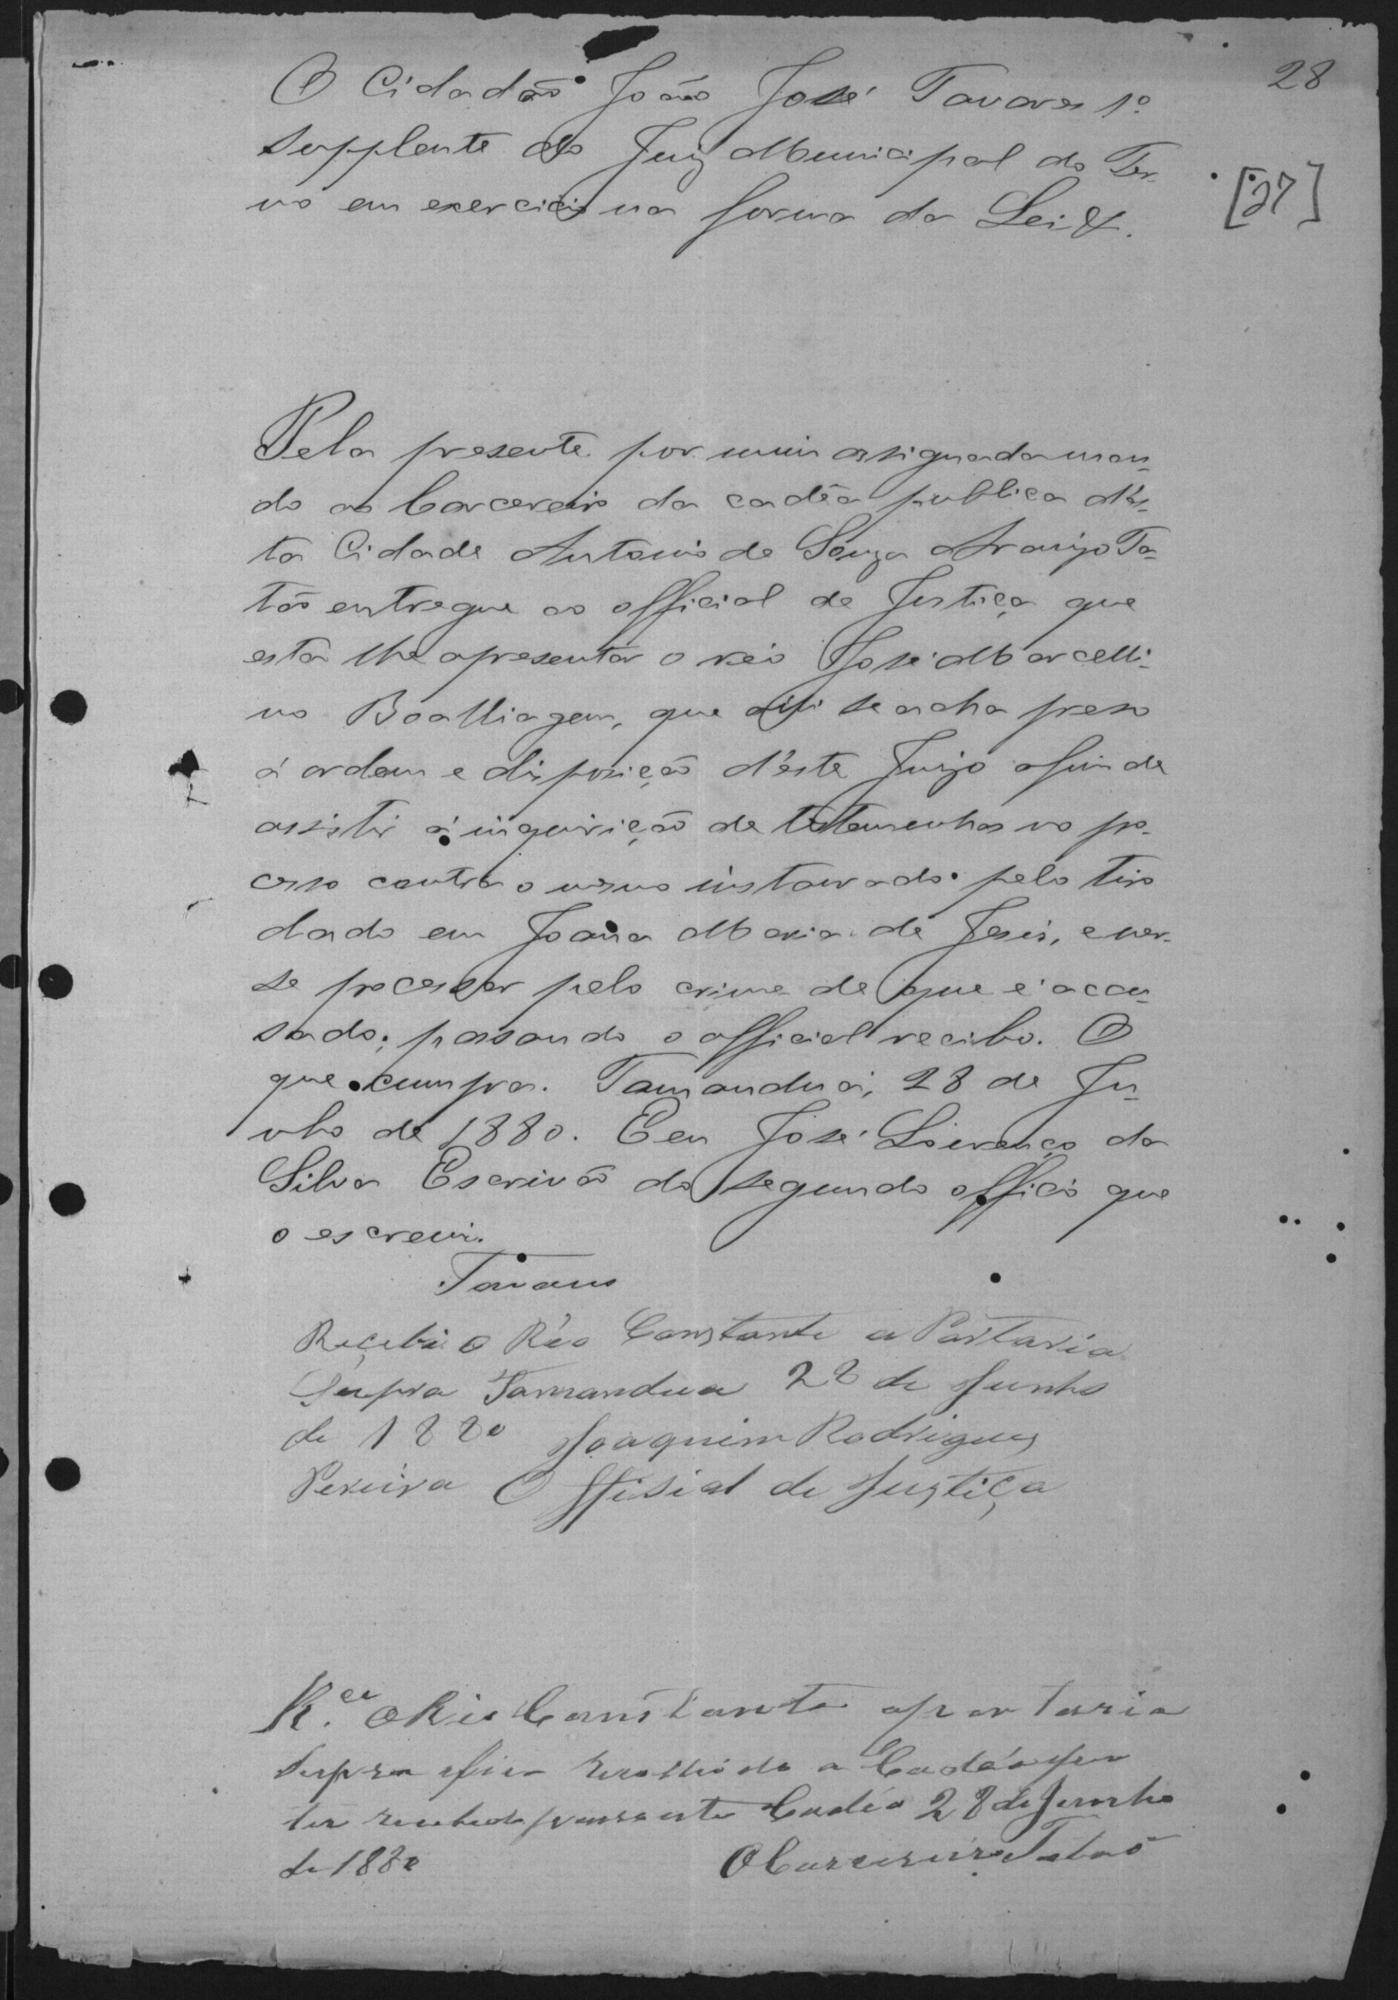 28
[27]
O Cidadão João José Tavares 1º
supplente do Juiz Municipal do Ter-
mo em exercicio na forma da Lei &.
Pela presente por mim assignada man-
do ao Carcereiro da cadêa publica d'és-
ta Cidade Antonio de Souza Araujo Ta-
tão entregue ao official de Justiça que
esta lhe apresentar o reio José Marcelli-
no Boalliagem, que ahi se acha preso
á ordem e disposição d'éste Juizo afim de
assistir á inquirição de testemunhas no pro-
cesso contra o mesmo instaurado pelo tiro
dado em Joana Maria de Jesus, e ver-
se processar pelo crime de que é accu-
sado; passando o official recibo. O
que cumpra. Tamanduá, 28 de Ju-
nho de 1880. Eeu José Lourenço da
Silva Escrivão do segundo officio que
o escrevi.
Tavares
Recebi o Réo Constante a Portaria
Supra Tamandua 28 de Junho
de 1880 Joaquim Rodrigues
Pereira Offisial de Justiça
R.ce o Rio Constante a portaria
Supra fica recolhido a Cadéa
ter recebido Cadéa 28 de Junho
de 1880 O Carcereiro Tatão